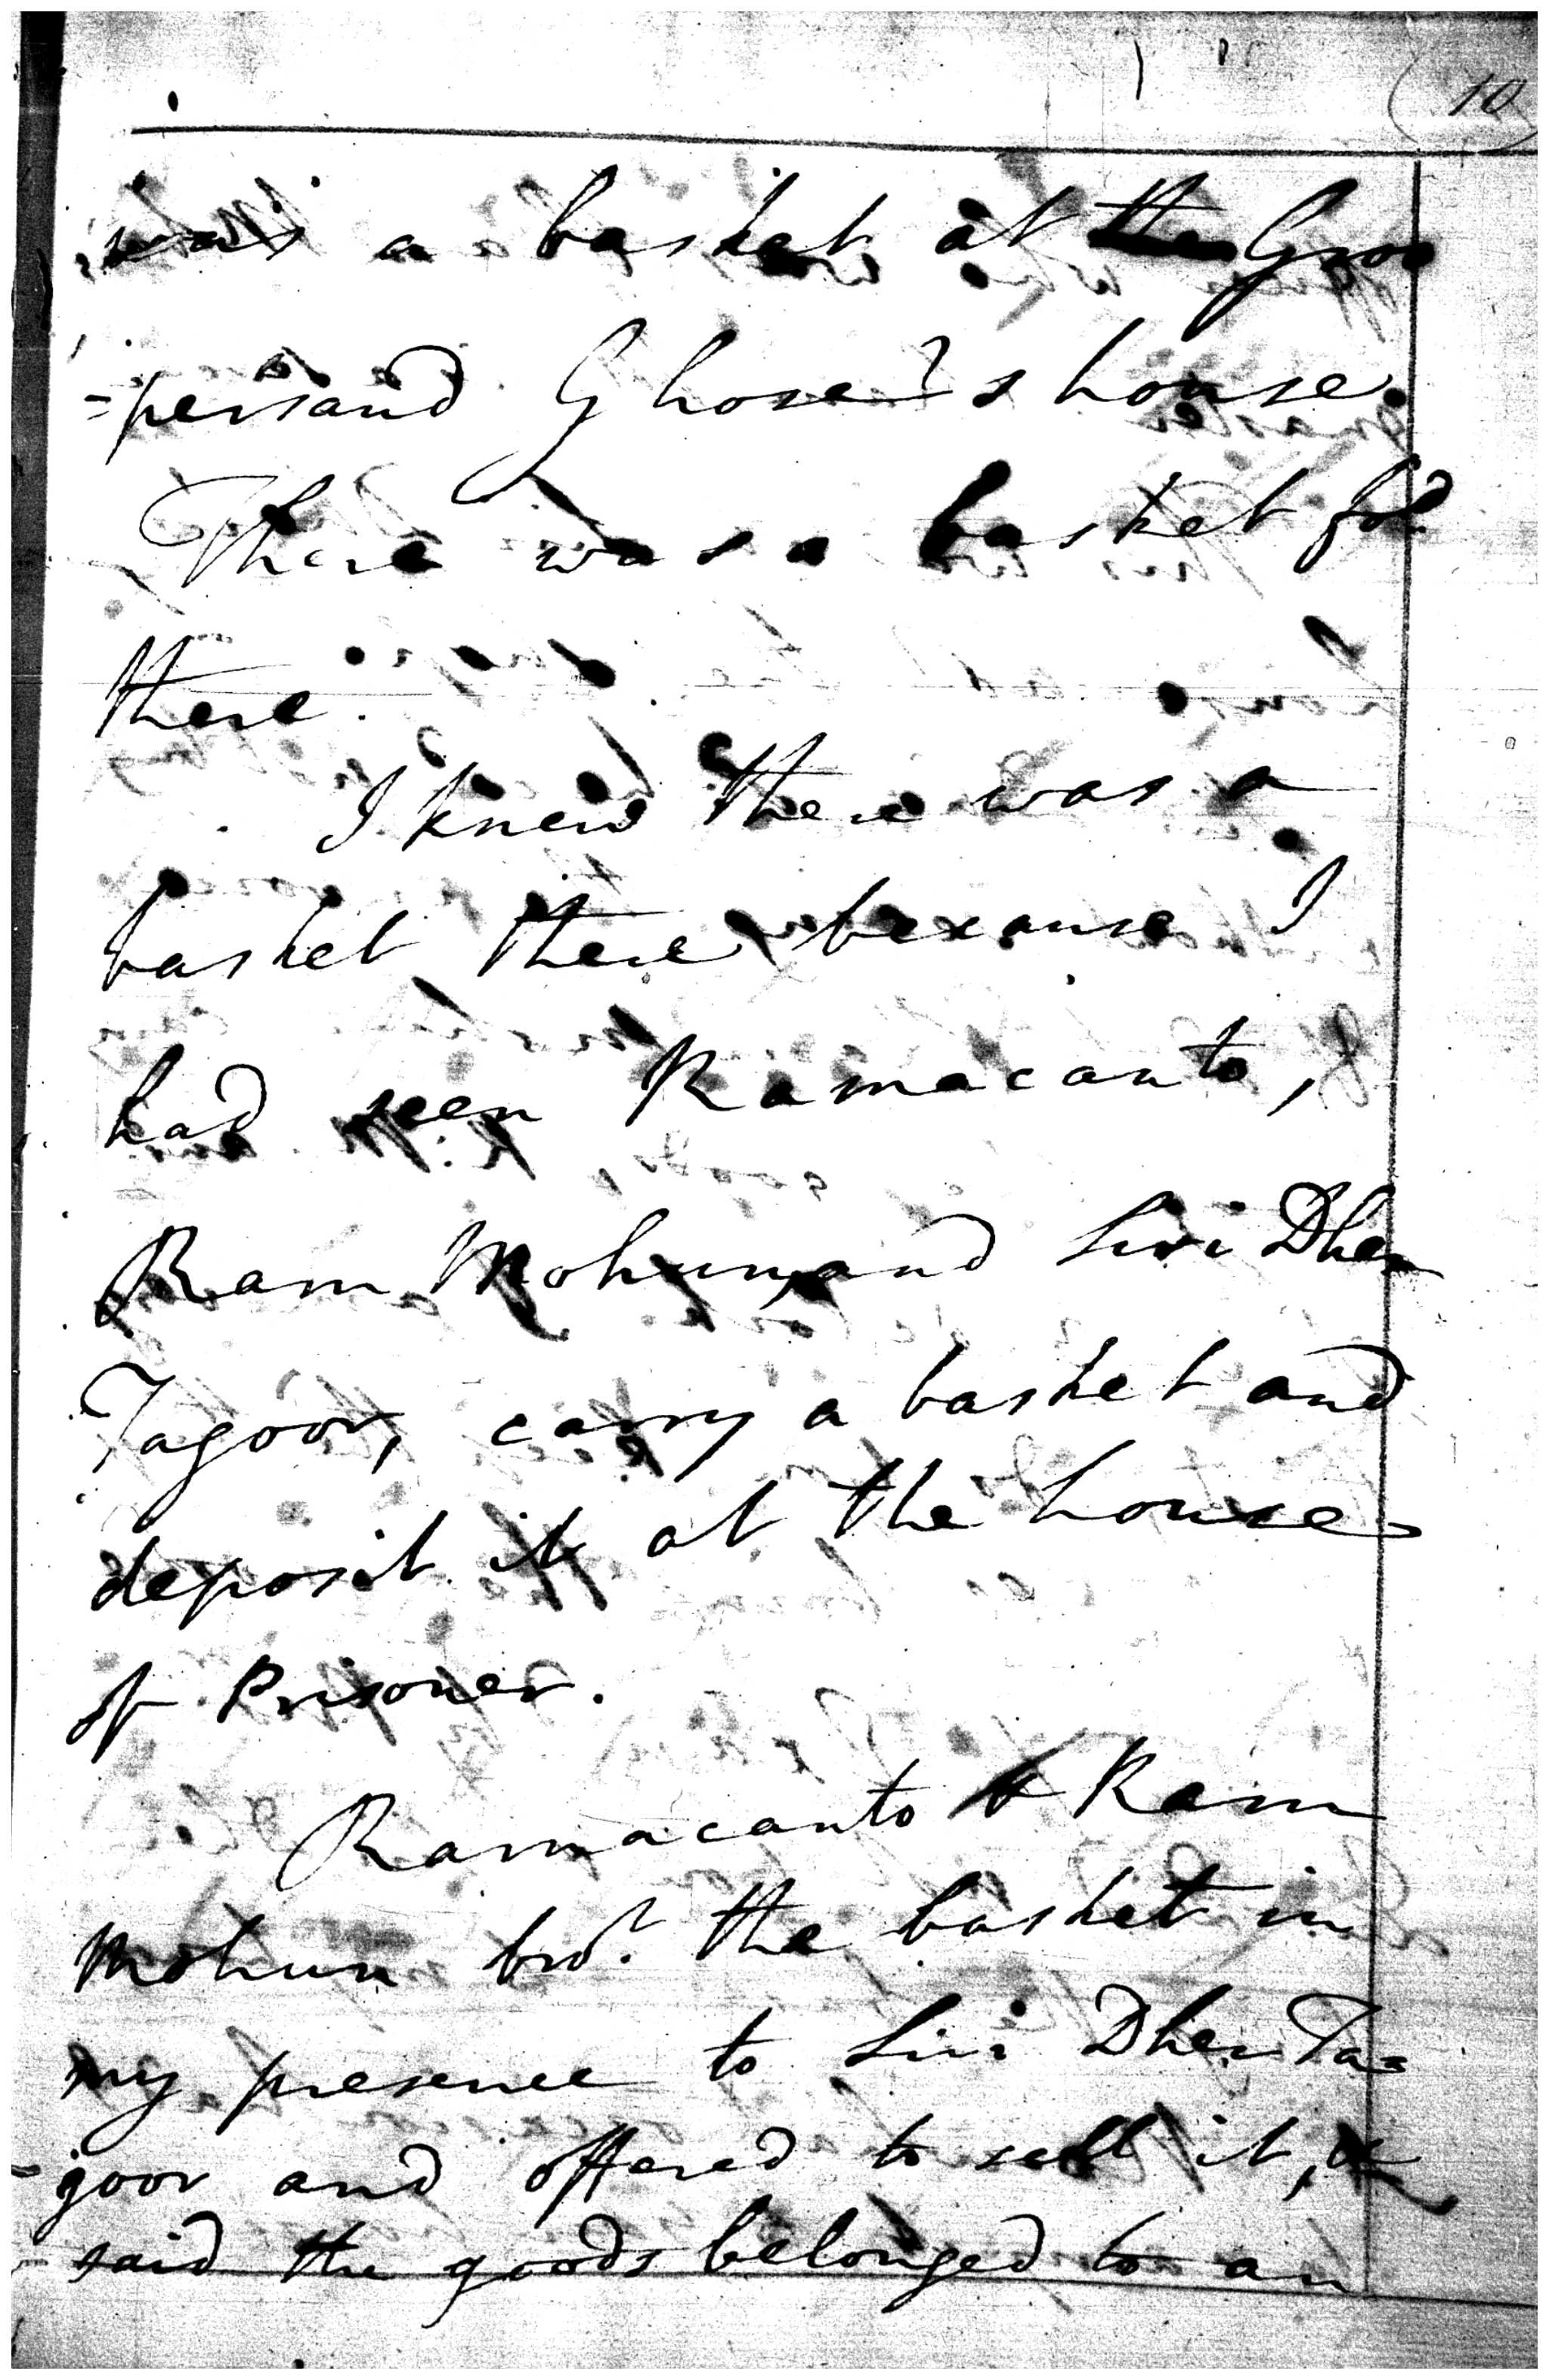 10
was a basket at Guru
=persaud Ghose's house.
There was a basket fod
there.
I knew there was a
basket there because I
had seen Ramacanto,
Ram Mohun, and Siri Dher
Tagoor, carry a basket and
deposit it at the house
of Prisoner.
Ramacanto & Ram
Mohun brot. the basket in
my presence to Siri Dher Ta=
=goor and offered to sell it, &
said the goods belonged to an